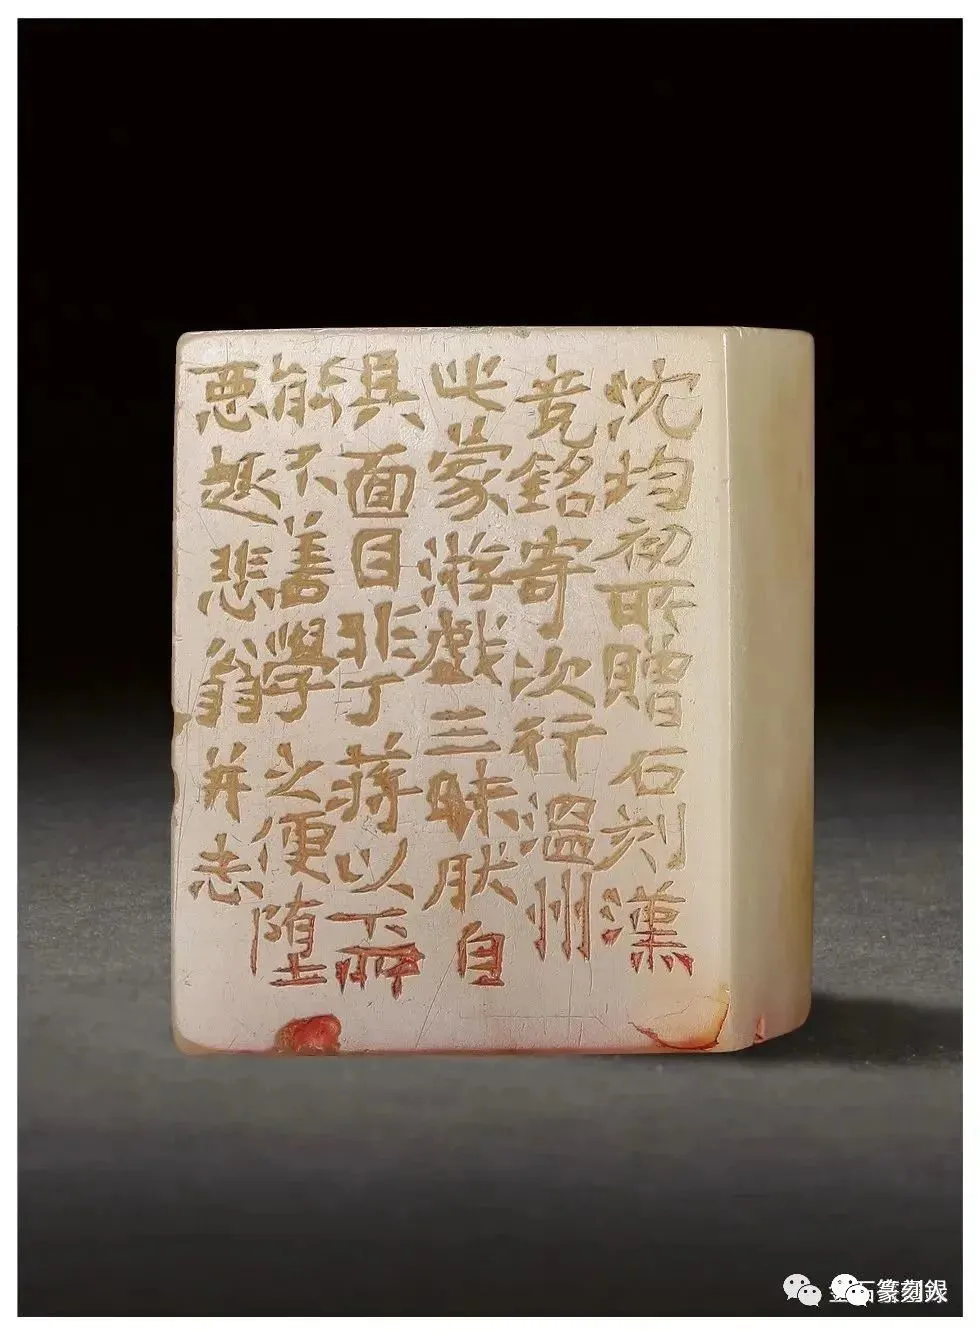 沈均初所贈石刻漢
竟銘寄次行溫州
此篆游戲三昧肰自
具面目非丁蔣以下所
能不善學之便堕
惡趣悲翁并志